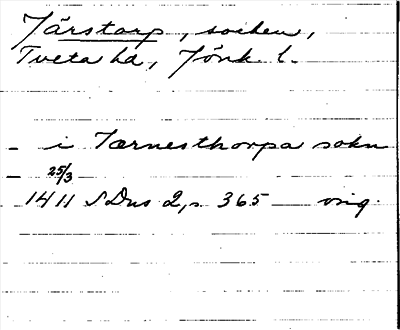 Järstorp, socken,
Tveta hd, Jönk l.
- i Jærnesthorpa sokn
- 25/3
1411 SDns 2, s. 365 orig.